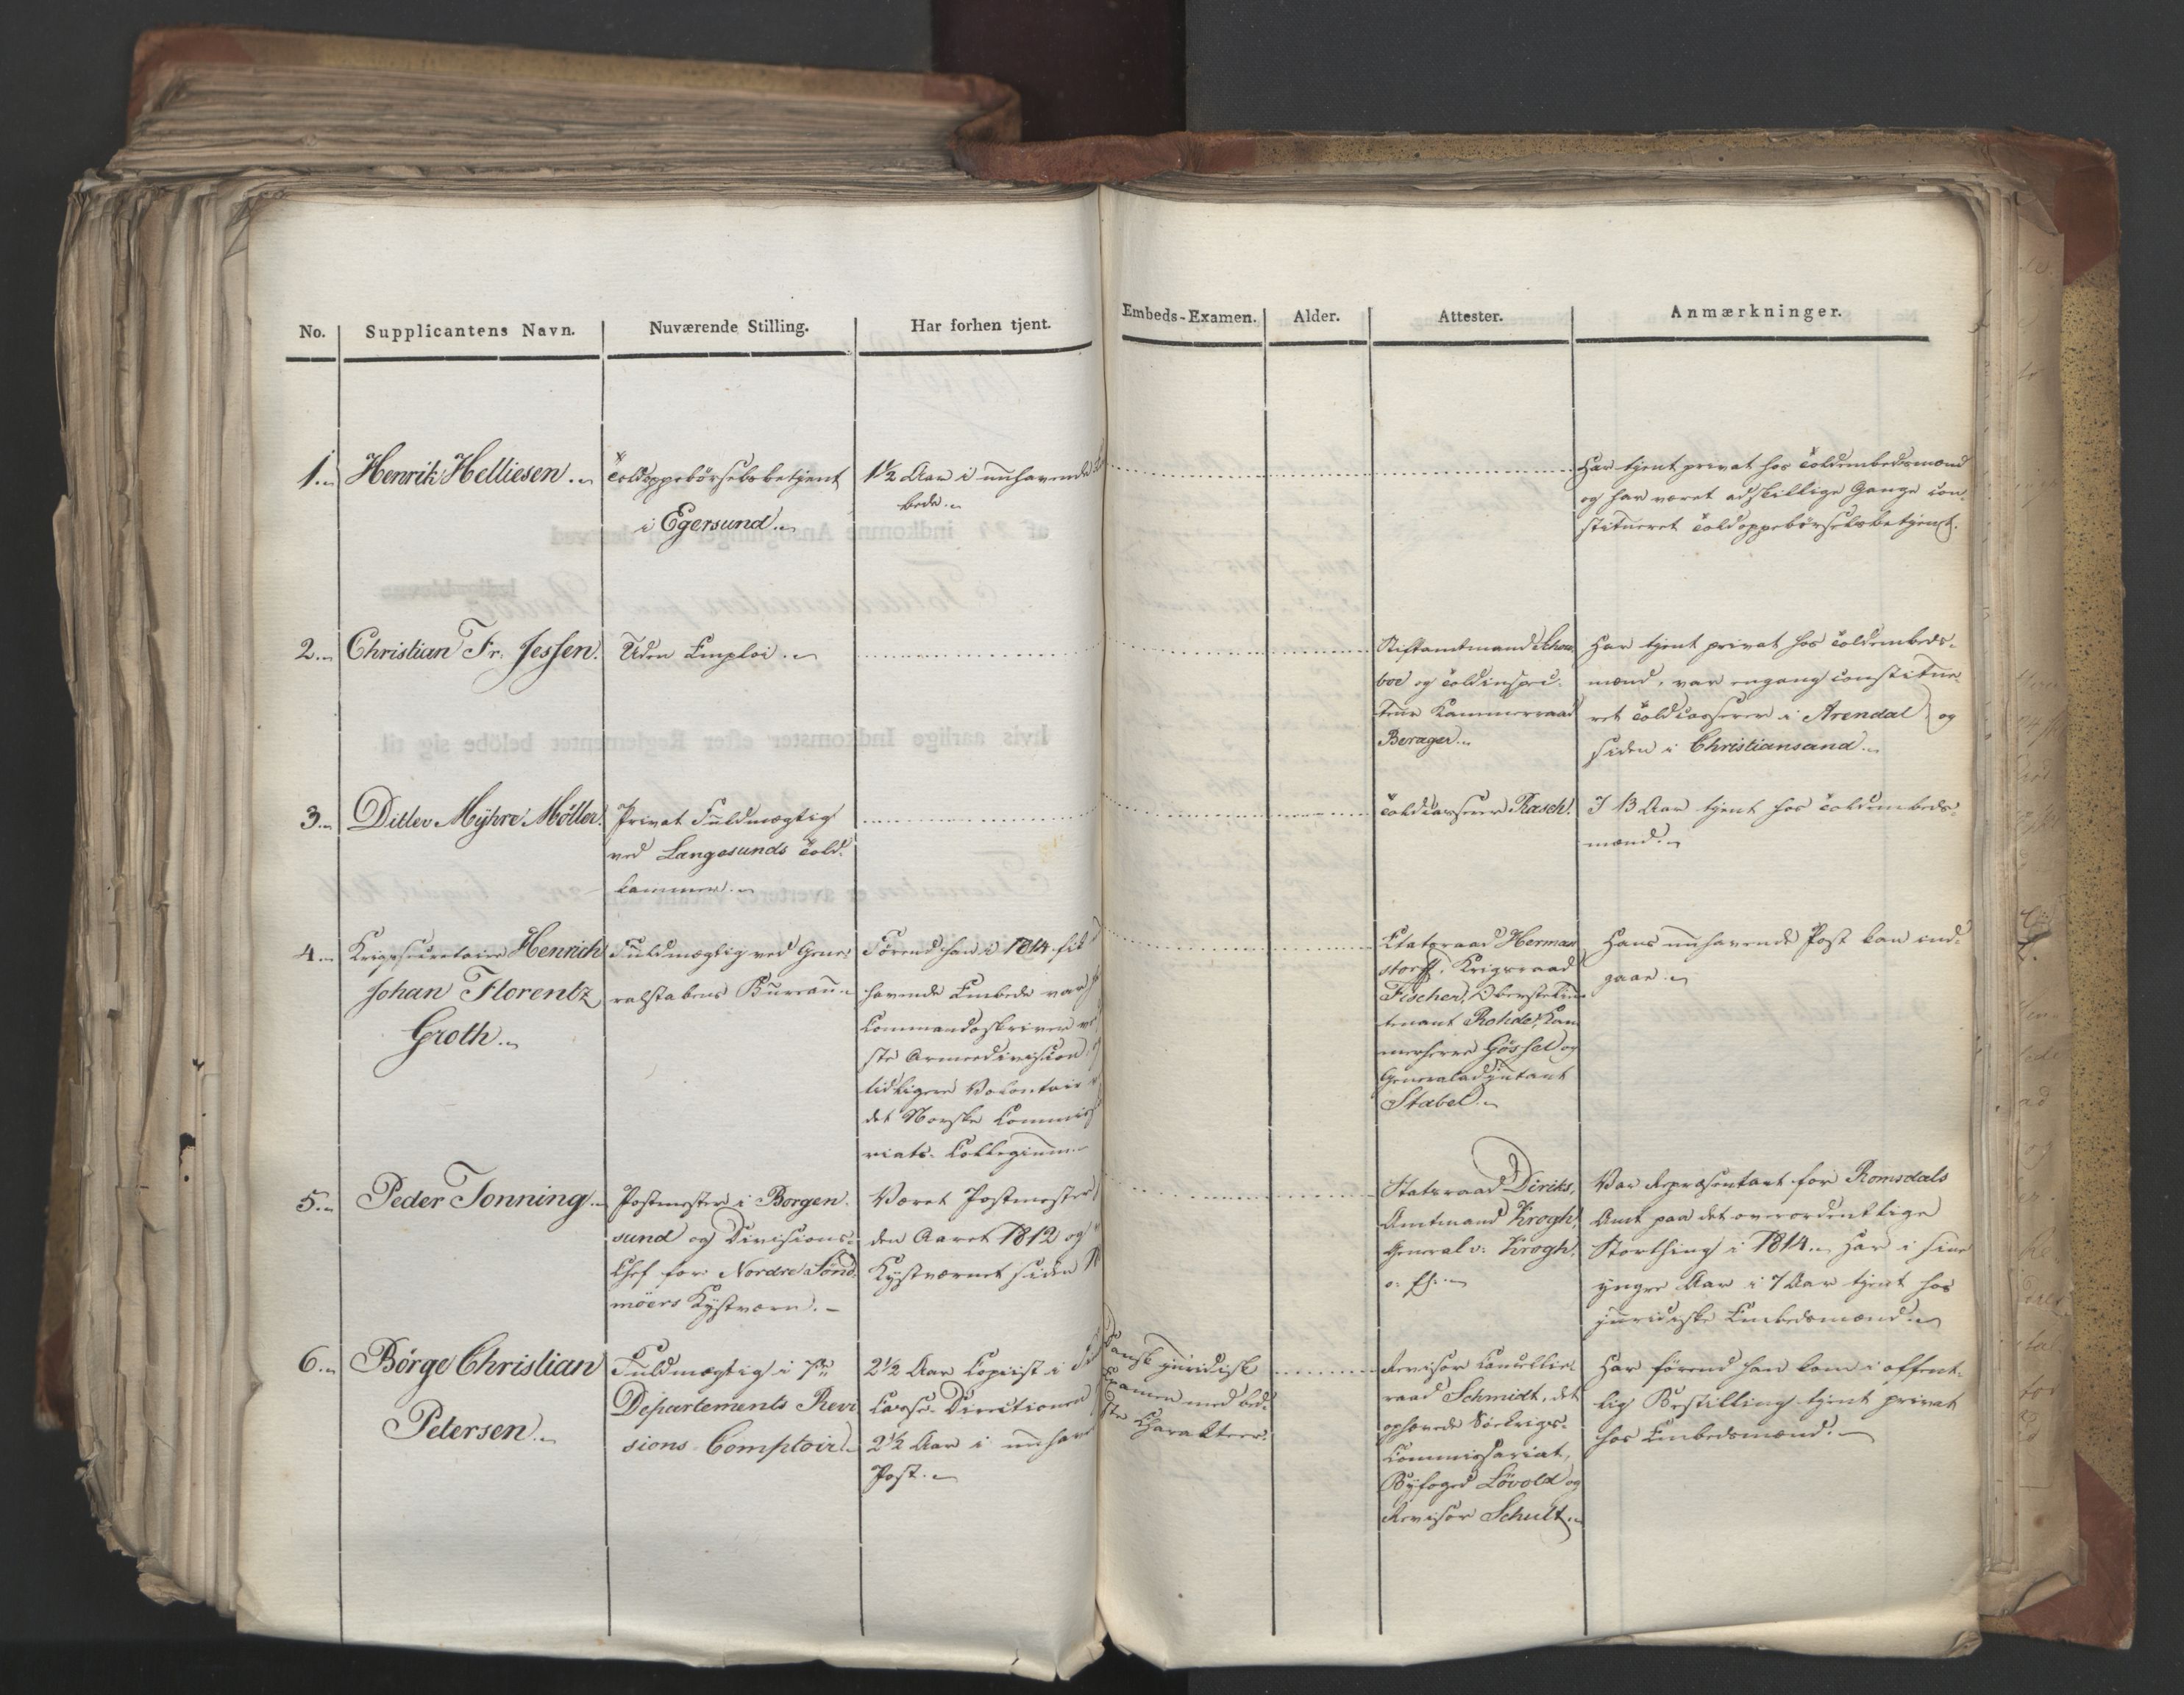 No. Supplicantens Navn. Nuværende Stilling. Har forhen tjent. Embeds-Examen. Alder. Attester. Anmærkninger.
1. Henrik Helliesen.
Toldoppebørselsbetjent
i Egersund.
1½ Aar i innhavende
bede.
Har tjent privat hos Toldembedsmænd
og har været adskillige Gange con-
stitueret Toldoppebørselsbetjent.
2. Christian Fr. Jessen.
Uden Emploi.
Stiftamtmand
boe og Toldinspec-
teur Kammerraad
Berager.
Har tjent privat hos Toldembeds-
mænd, var engang constitue-
ret Toldcasserer i Arendal og
siden i Christiansand.
3. Ditlev Myhre Møller.
Privat Fuldmægtig
ved Langesunds Told-
kammer.
Toldcasserer Rasch.
I 13 Aar tjent hos Toldembeds-
mænd.
4. Krigssecretaire Henrich
Johan Florentz
Groth.
Fuldmægtig ved Gene-
ralstabens Bureau
Førend han i 1814 fik
havende Embede var
Commandoskriver
ste Armeedivision
tidligere Volontair
det Norske Commis
riats-Collegium
Etatsraad Herman
storff, Krigsraad
Fischer, Oberstlieu
tenant Rohde, Kam
merherre Gössel og
Generaladjutant
Stabel.
Hans innhavende Post kan ind-
gaae.
5. Peder Tonning.
Postmester i Borgen-
sund og Divisions-
Chef for Nordre Sönd-
möers Kystværn.
Været Postmester
den Aaret 1812 og
Kystværnet siden
Statsraad Diriks,
Amtmand Krogh,
General v. Krogh,
o. fl.
Var Repræsentant for Romsdals
Amt paa det overordentlige
Storthing i 1814. Har i sine
yngre Aar i 7 Aar tjent hos
juridiske Embedsmænd.
6. Börge Christian
Petersen.
Fuldmægtig i
Departements Revi
sions-Comptoir.
2½ Aar Copiist i
Casse-Directionen
2½ Aar i innhav
Post.
Dansk juridisk
Examen med bed-
ste Charakteer.
Revisor Cancellie-
raad Schmidt, det
ophævede Söekrigs-
Commissariat,
Byfoged Lövold og
Revisor Schult.
Har førend han kom i offent-
lig Bestilling tjent privat
hos Embedsmænd.